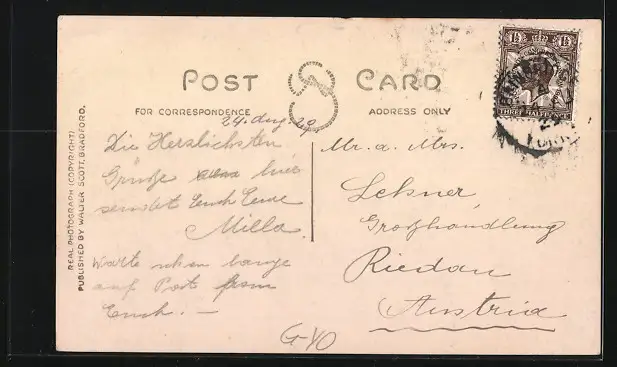 POST CARD
FOR CORRESPONDENCE
ADDRESS ONLY
24. Aug. 29
Die Herzlichsten
Grüße hier
sendet Euch Eure
Milla
Warte schon lange
auf Post from
Euch. —
Mr. a. Mrs.
Lekner,
Großhandlung
Riedau
Austria
G-VO
REAL PHOTOGRAPH (COPYRIGHT)
PUBLISHED BY WALTER SCOTT, BRADFORD.
1½ 1½
THREE HALFPENCE